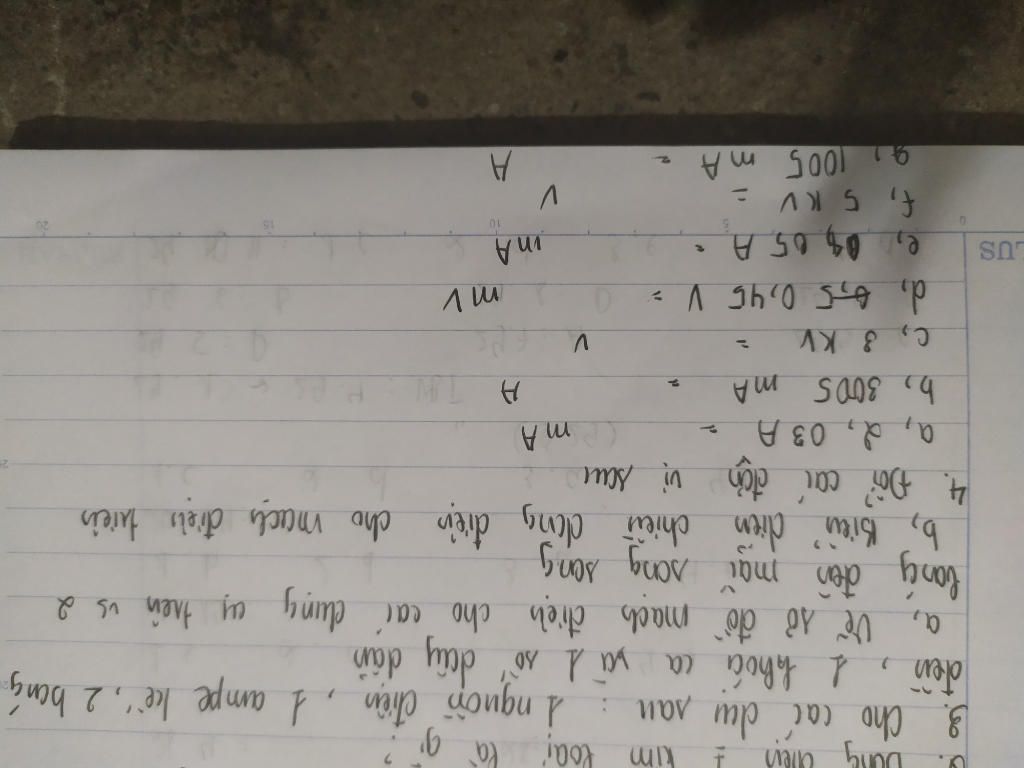 Dòng điện I kim loại là gì?
3. Cho các dư sau : 1 nguồn điện, 1 ampe kế, 2 bóng
đèn, 1 khoá ca và 1 số dây dẫn
a, Vẽ sơ đồ mạch điện cho các dụng cụ trên vs 2
bóng đèn mắc song song
b, Biểu diễn chiều dòng điện cho mạch điện trên
4. Đổi các đơn vị sau
a, 2,03 A = mA
b, 3005 mA = A
c, 3 KV = V
d, 0,45 V = mV
e, 05 A = mA
f, 5 KV = V
g, 1005 mA = A
LUS
0 10 15 20